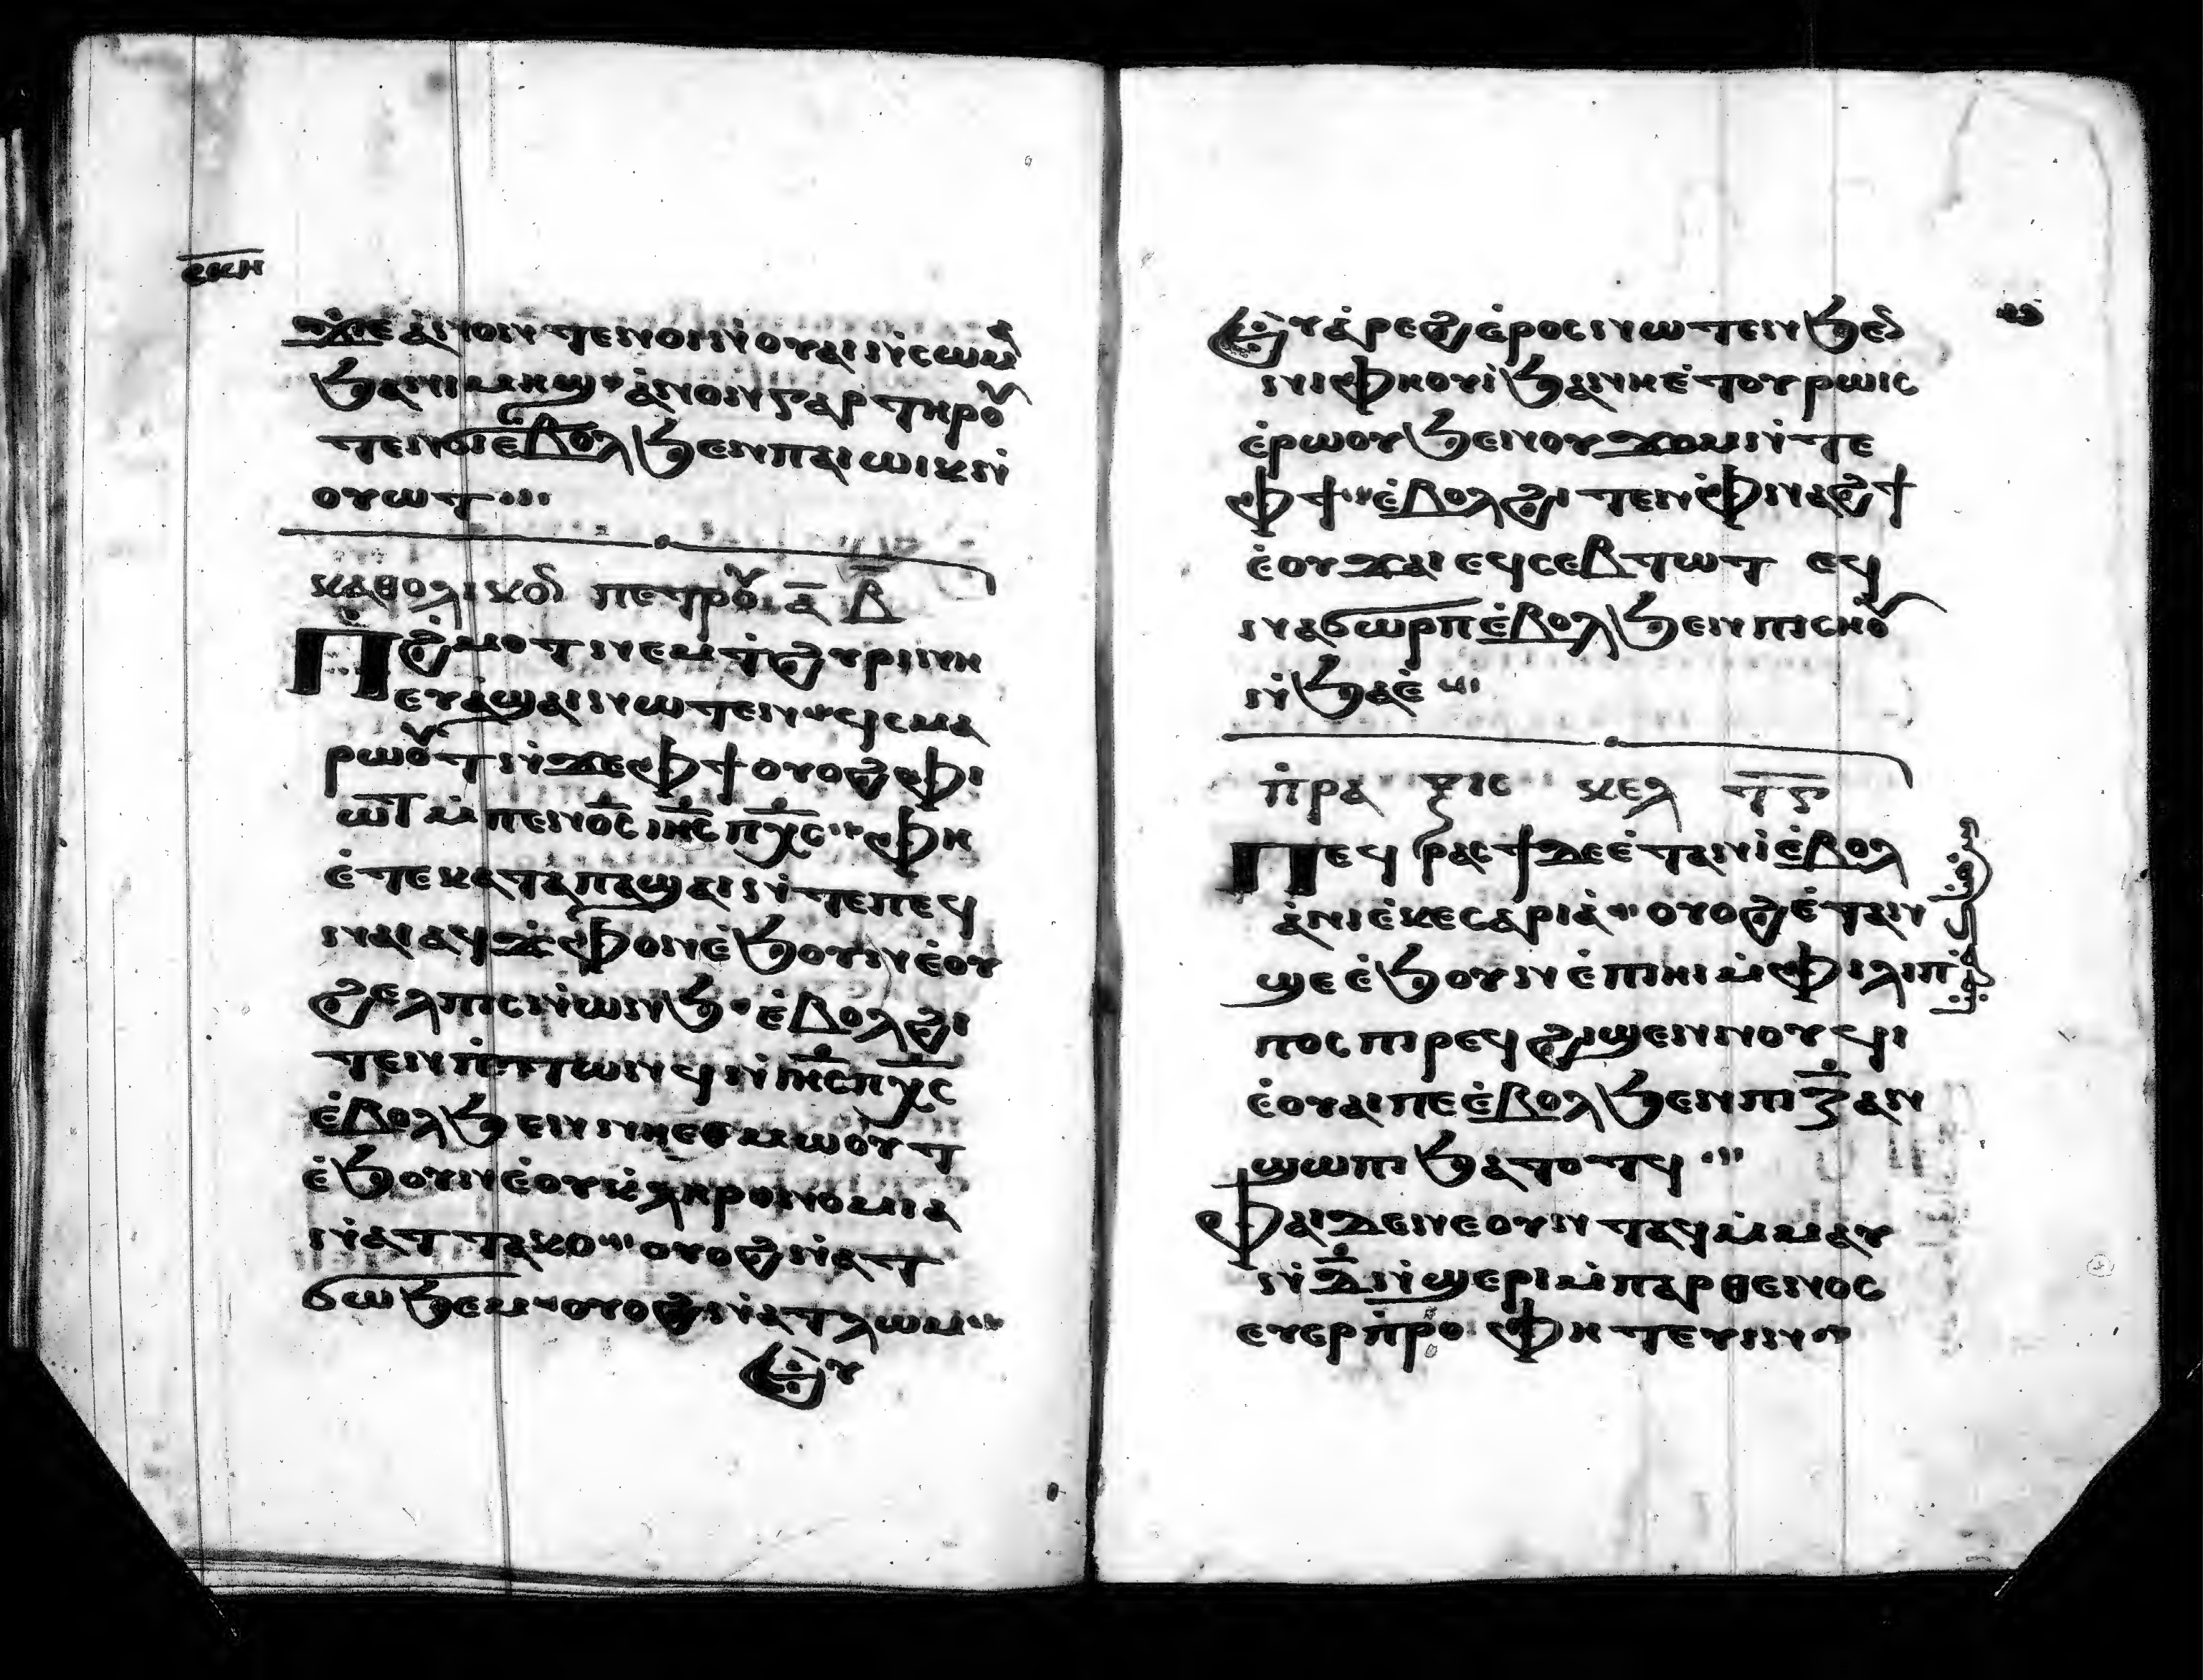 ⲥⲕⲏ
ϫⲉ ⲁⲛⲟⲛ ⲧⲉⲛⲟⲓ ⲛ̀ⲟⲩⲁⲓ ⲛ̀ⲥⲱⲙⲁ
ϧⲁ ⲛⲓⲙⲏϣ ⲁ̀ⲛⲟⲛ ⲅⲁⲣ ⲧⲏⲣⲟⲩ
ⲧⲉⲛϭⲓ ⲉ̀ⲃⲟⲗ ϧⲉⲛ ⲡⲁⲓⲱⲓⲕ ⲛ̀
ⲟⲩⲱⲧ
ⲕⲁⲑⲟⲗⲓⲕⲟⲛ ⲡⲉⲧⲣⲟⲩ ⲁ̅ ⲃ̅
Ⲡϩ̀ⲙⲟⲧ ⲛⲉⲙ ⲧ̀ϩⲩⲣⲓⲛⲏ
ⲉⲩⲁ̀ϣⲁⲓ ⲛⲱⲧⲉⲛ ϥ̀ⲥⲙⲁ
ⲣⲱⲟⲩⲧ ⲛ̀ϫⲉ ⲫϯ ⲟⲩⲟϩ ⲫⲓ
ⲱⲧ ⲙ̀ⲡⲉⲛⲟ̅ⲥ̅ ⲓⲏ̅ⲥ̅ ⲡⲭ̅ⲥ̅ ⲫⲏ
ⲉ̀ⲧⲉ ⲕⲁⲧⲁ ⲡⲁϣⲁⲓ ⲛ̀ⲧⲉ ⲡⲉϥ
ⲛⲁⲓ ⲁϥϫ̀ⲫⲟⲛ ⲉ̀ϧⲟⲩⲛ ⲉ̀ⲟⲩ
ϩⲉⲗⲡⲓⲥ ⲛ̀ⲱⲛϧ ⲉ̀ⲃⲟⲗ ϩⲓ
ⲧⲉⲛ ⲡ̀ⲧⲱⲛϥ ⲛ̀ⲓⲏ̅ⲥ̅ ⲡⲭ̅ⲥ̅
ⲉ̀ⲃⲟⲗ ϧⲉⲛ ⲛⲏⲉⲑⲙⲱⲟⲩⲧ
ⲉ̀ϧⲟⲩⲛ ⲉ̀ⲟⲩⲕ̀ⲗⲏⲣⲟⲛⲟⲙⲓⲁ
ⲛ̀ⲁⲧⲧⲁⲕⲟ ⲟⲩⲟϩ ⲛ̀ⲁⲧ
ϭⲱϧⲉⲙ ⲟⲩⲟϩ ⲛ̀ⲁⲧⲗⲱⲙ
Ⲉⲩ
Ⲉⲩⲁ̀ⲣⲉϩ ⲉ̀ⲣⲟⲥ ⲛⲱⲧⲉⲛ ϧⲉⲛ
ⲛⲓⲫⲏⲟⲩⲓ̀ ϧⲁ ⲛⲏⲉ̀ⲧⲟⲩⲣⲱⲓⲥ
ⲉ̀ⲣⲱⲟⲩ ϧⲉⲛ ⲟⲩϫⲟⲙ ⲛ̀ⲧⲉ
ⲫϯ ⲉ̀ⲃⲟⲗ ϩⲓⲧⲉⲛ ⲫ̀ⲛⲁϩϯ
ⲉ̀ⲟⲩϫⲁⲓ ⲉϥⲥⲉⲃⲧⲱⲧ ⲉϥ
ⲛⲁϭⲱⲣⲡ ⲉ̀ⲃⲟⲗ ϧⲉⲛ ⲡⲓⲥⲏⲟⲩ
ⲛ̀ϧⲁⲉ̀
ⲡ̀ⲣⲁⲝⲓⲥ ⲕⲉⲗ
Ⲡⲉϥⲣⲁⲥϯ ϫⲉ ⲉ̀ⲧⲁⲛⲓ̀ ⲉ̀ⲃⲟⲗ
ⲁ̀ⲛⲓ ⲉ̀ⲕⲉⲥⲁⲣⲓⲁ̀ ⲟⲩⲟϩ ⲉ̀ⲧⲁⲛ
ϣⲉ ⲉ̀ϧⲟⲩⲛ ⲉ̀ⲡⲏⲓ ⲙ̀ⲫⲓⲗⲓⲡ
ⲡⲟⲥ ⲡⲓⲣⲉϥϩⲓϣⲉⲛⲛⲟⲩϥⲓ
ⲉ̀ⲟⲩⲁⲓ ⲡⲉ ⲉ̀ⲃⲟⲗ ϧⲉⲛ ⲡⲓⲍ̅ ⲁⲛ
ϣⲱⲡⲓ ϧⲁⲧⲟⲧϥ
Ⲫⲁⲓ ϫⲉ ⲛⲉ ⲟⲩⲛⲧⲁϥ ⲙ̀ⲙⲁⲩ
ⲛ̀ⲇ̅ ⲛ̀ϣⲉⲣⲓ ⲙ̀ⲡⲁⲣⲑⲉⲛⲟⲥ
ⲉⲩⲉⲣⲡ̀ⲣⲟⲫⲏⲧⲉⲩⲓⲛ